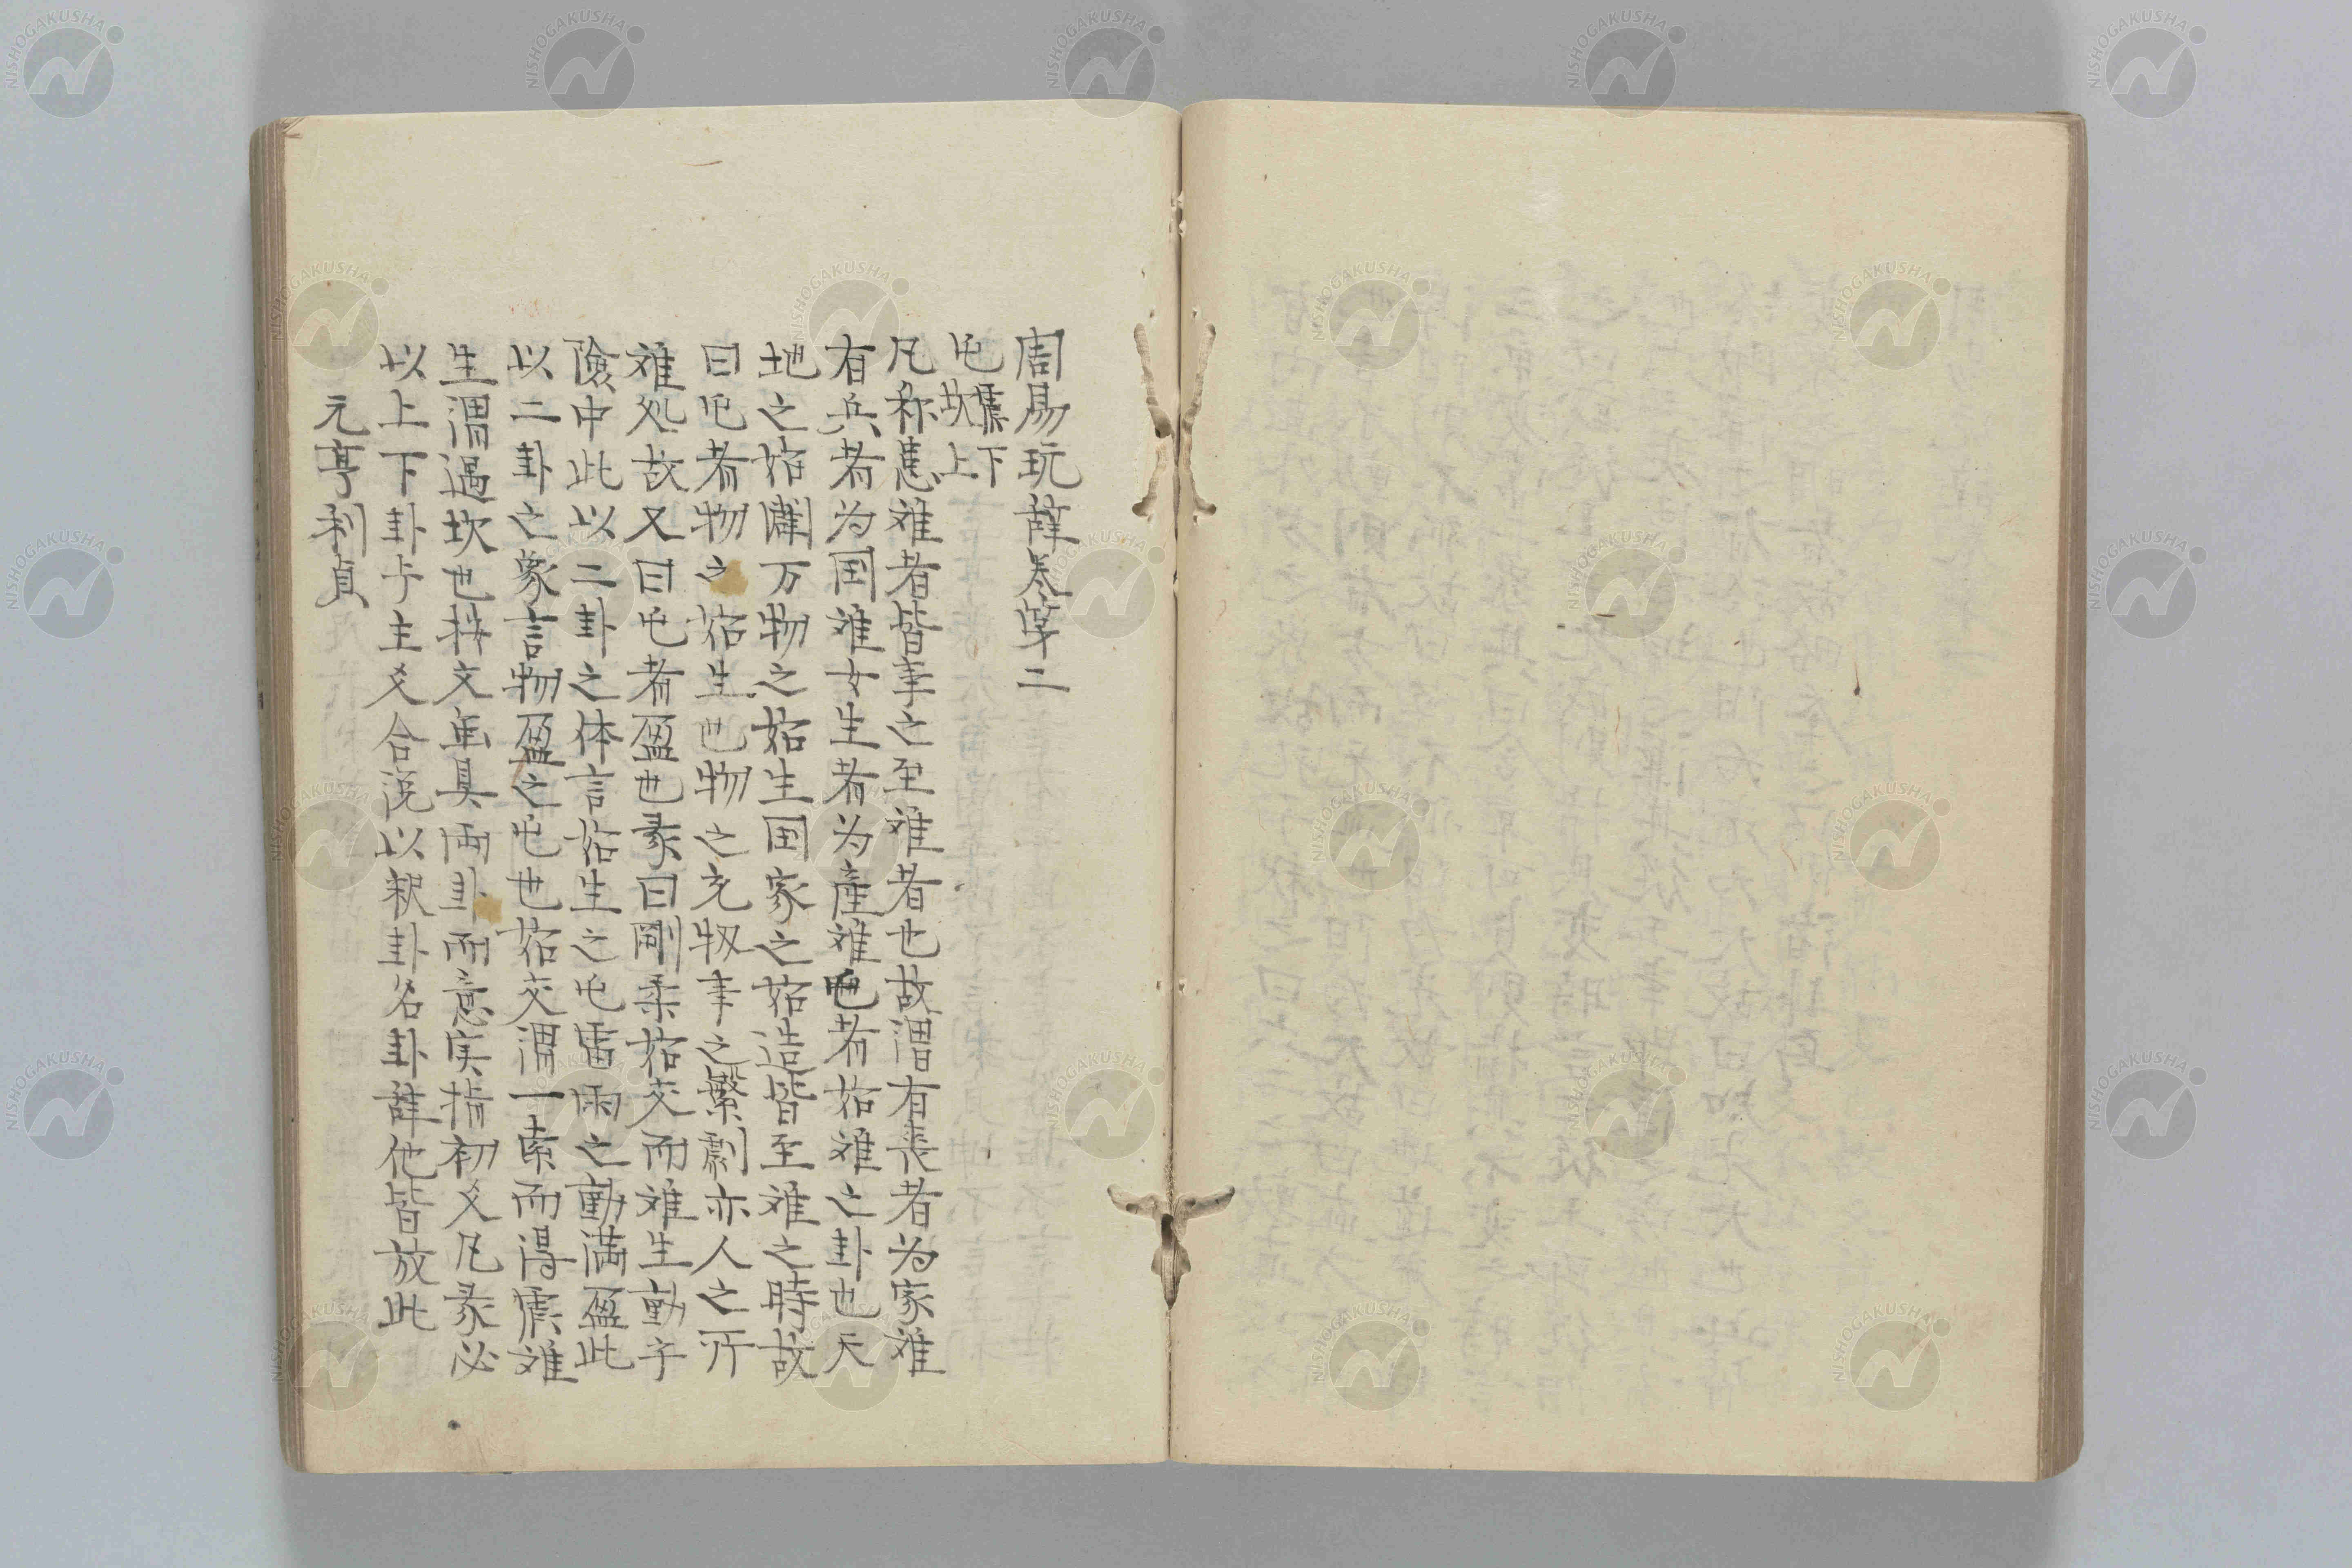 周易玩辭卷第二
屯 震下坎上
凡称患难者皆事之至难者也故谓有丧者为家难
有兵者为国难女生者为産难屯者始难之卦也天
地之始闢万物之始生国家之始造皆至难之時故
曰屯者物之始生也物之充牣事之繁劇亦人之所
难处故又曰屯者盈也彖曰剛柔始交而难生動乎
險中此以二卦之体言始生之屯雷雨之動满盈此
以二卦之象言物盈之屯也始交谓一索而得震难
生谓遇坎也按文虽具两卦而意実指初爻凡彖必
以上下卦与主爻合说以釈卦名卦辞他皆放此
元亨利貞
NISHOGAKUSHA